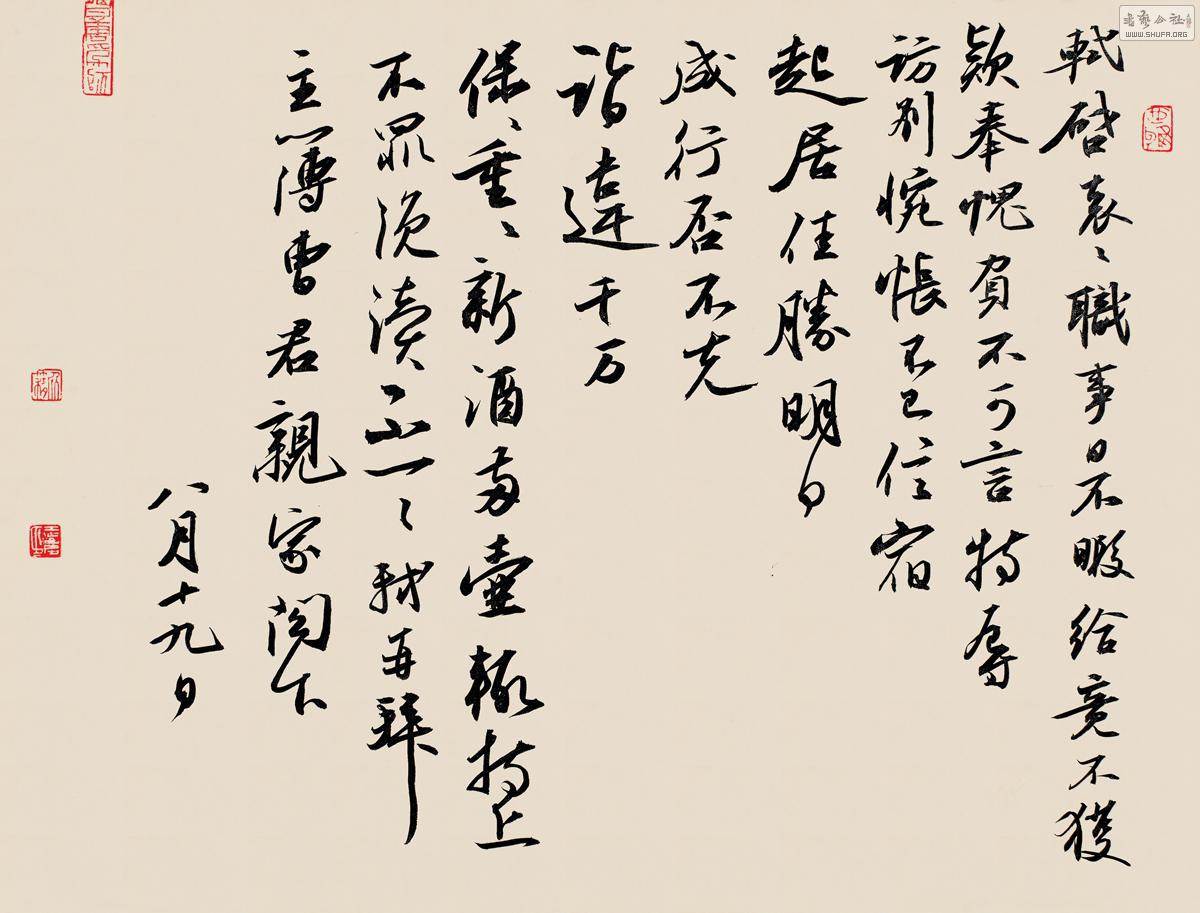 軾啓袞〻職事日不暇給竟不獲
款奉愧負不可言特辱
訪別惋悵不已信宿
起居佳勝明日
成行否不克
詣違千万
保〻重〻新酒两壺輙持上
不罪浼瀆不一〻軾再拜
主簿曹君親家閣下
八月十九日
WWW.SHUFA.ORG